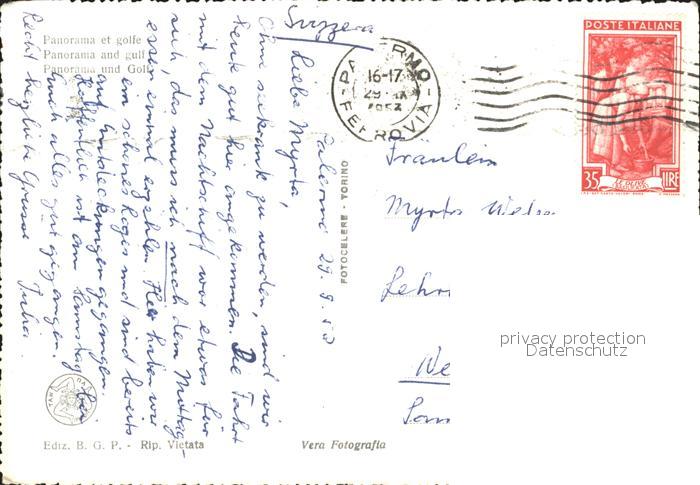 Svizzera
Panorama et golfe
Panorama and gulf
Panorama und Golf
PALERMO
16-17
29 IX
1953
FERROVIA
POSTE ITALIANE
35 LIRE
Palermo 29.9.53
Liebe Myrta,
Ohne seekrank zu werden, sind wir
heute gut hier angekommen. Die Fahrt
mit dem Nachtschiff war etwas für
sich, das muss ich nach dem Mittag-
essen einmal erzählen. Hier haben wir
ein schönes Logis und sind bereits
auf Entdeckungen gegangen.
Hoffentlich ist am Samstag bei
Euch alles gut gegangen.
Recht herzliche Grüsse
FOTOCELERE - TORINO
Fräulein
Myrta
Lehr
We
privacy protection
Datenschutz
Ediz. B. G. P. - Rip. Vietata
Vera Fotografia